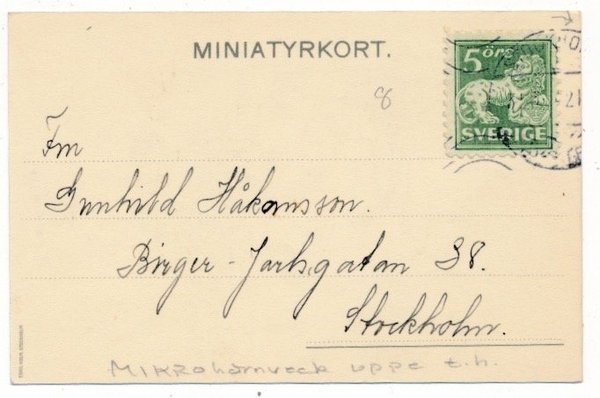 MINIATYRKORT.
5 öre
SVERIGE
8
Frn
Gunhild Håkansson.
Birger-Jarlsgatan 38.
Stockholm.
MIKROhörnveck uppe t.h.